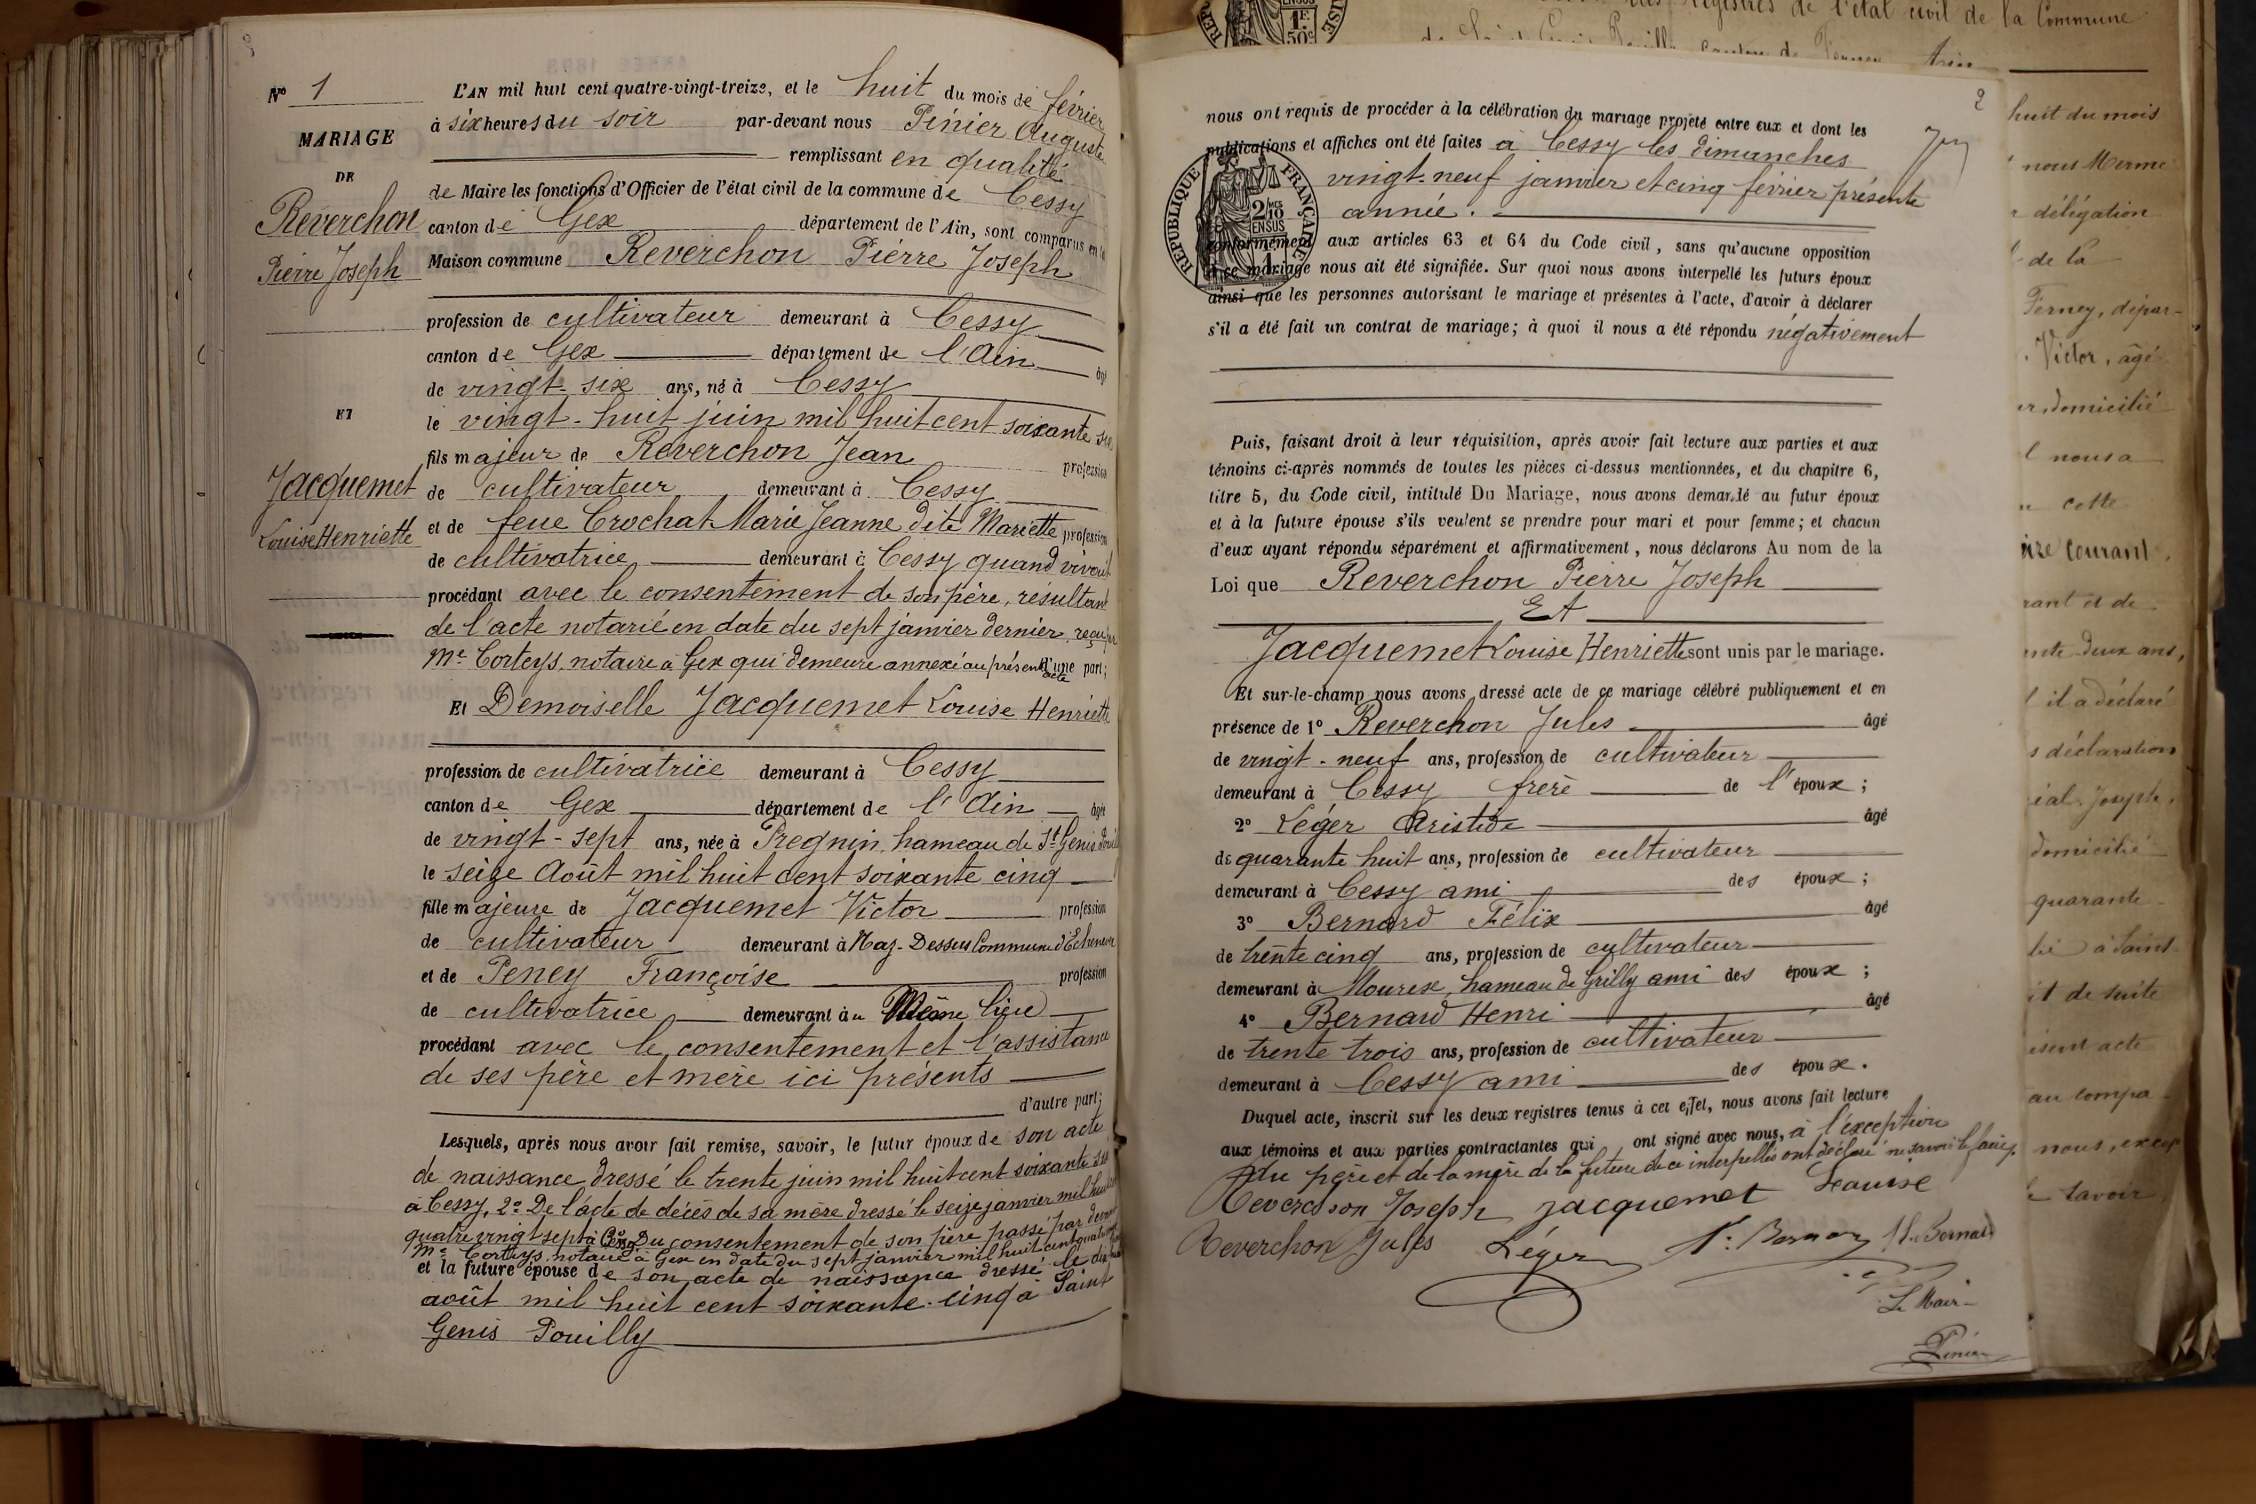 Nº 1
MARIAGE
DE
Reverchon
Pierre Joseph
ET
Jacquemet
Louise Henriette
L'AN mil huit cent quatre-vingt-treize, et le huit du mois de février
à six heures du soir par-devant nous Pinier Auguste
remplissant en qualité
de Maire les fonctions d'Officier de l'état civil de la commune de Cessy
canton de Gex département de l'Ain, sont comparus en la
Maison commune Reverchon Pierre Joseph
profession de cultivateur demeurant à Cessy
canton de Gex département de l'Ain âgé
de vingt-six ans, né à Cessy
le vingt-huit juin mil huit cent soixante six
fils majeur de Reverchon Jean profession
de cultivateur demeurant à Cessy
et de feue Crochat Marie Jeanne dite Mariette profession
de cultivatrice demeurant à Cessy quand vivait
procédant avec le consentement de son père, résultant
de l'acte notarié en date du sept janvier dernier, reçu par
Me Corteys, notaire à Gex qui demeure annexé au présent acte d'une part;
Et Demoiselle Jacquemet Louise Henriette
profession de cultivatrice demeurant à Cessy
canton de Gex département de l'Ain âgée
de vingt-sept ans, née à Pregnin, hameau de St Genis Pouilly
le seize Août mil huit cent soixante cinq
fille majeure de Jacquemet Victor profession
de cultivateur demeurant à Naz-Dessus Commune d'Echenevex
et de Peney Françoise profession
de cultivatrice demeurant au Même lieu
procédant avec le consentement et l'assistance
de ses père et mère ici présents
d'autre part;
Lesquels, après nous avoir fait remise, savoir, le futur époux de son acte
de naissance dressé le trente juin mil huit cent soixante six
à Cessy, 2º De l'acte de décès de sa mère dressé le seize janvier mil huit cent
quatre vingt sept à Cessy 3º Du consentement de son père passé par devant
Me Corteys, notaire à Gex en date du sept janvier mil huit cent quatre vingt
et la future épouse de son acte de naissance dressé le dix
août mil huit cent soixante-cinq à Saint
Genis Pouilly
2
nous ont requis de procéder à la célébration du mariage projeté entre eux et dont les
publications et affiches ont été faites à Cessy les dimanches
vingt-neuf janvier et cinq février présente
année.
RÉPUBLIQUE FRANÇAISE
conformément aux articles 63 et 64 du Code civil, sans qu'aucune opposition
à ce mariage nous ait été signifiée. Sur quoi nous avons interpellé les futurs époux
ainsi que les personnes autorisant le mariage et présentes à l'acte, d'avoir à déclarer
s'il a été fait un contrat de mariage; à quoi il nous a été répondu négativement
Puis, faisant droit à leur réquisition, après avoir fait lecture aux parties et aux
témoins ci-après nommés de toutes les pièces ci-dessus mentionnées, et du chapitre 6,
titre 5, du Code civil, intitulé Du Mariage, nous avons demandé au futur époux
et à la future épouse s'ils veulent se prendre pour mari et pour femme; et chacun
d'eux ayant répondu séparément et affirmativement, nous déclarons Au nom de la
Loi que Reverchon Pierre Joseph
Et
Jacquemet Louise Henriette sont unis par le mariage.
Et sur-le-champ nous avons dressé acte de ce mariage célébré publiquement et en
présence de 1º Reverchon Jules âgé
de vingt-neuf ans, profession de cultivateur
demeurant à Cessy frère de l'époux;
2º Léger Aristide âgé
de quarante huit ans, profession de cultivateur
demeurant à Cessy ami des époux;
3º Bernard Félix âgé
de trente cinq ans, profession de cultivateur
demeurant à Mourex, hameau de Grilly ami des époux;
4º Bernard Henri âgé
de trente trois ans, profession de cultivateur
demeurant à Cessy ami des époux.
Duquel acte, inscrit sur les deux registres tenus à cet effet, nous avons fait lecture
aux témoins et aux parties contractantes qui ont signé avec nous, à l'exception
du père et de la mère de la future de ce interpellés ont déclaré ne savoir le faire,
Reverchon Joseph Jacquemet Louise
Reverchon Jules Léger F. Bernard H. Bernard
Le Maire
Pinier
registres de l'état civil de la Commune
huit du mois
nous Merme
délégation
de la
Ferney, dépar-
Victor, âgé
domicilié
nous a
cette
courant
rant et de
deux ans,
il a déclaré
déclaration
Joseph,
domicilié
quarante
à Saint
et de suite
acte
au compa-
nous, excep
savoir